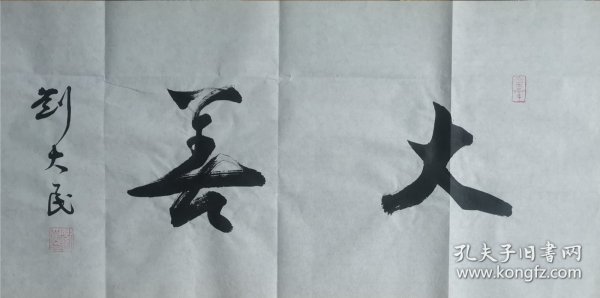 大善
劉大民
孔夫子旧書网
www.kongfz.com